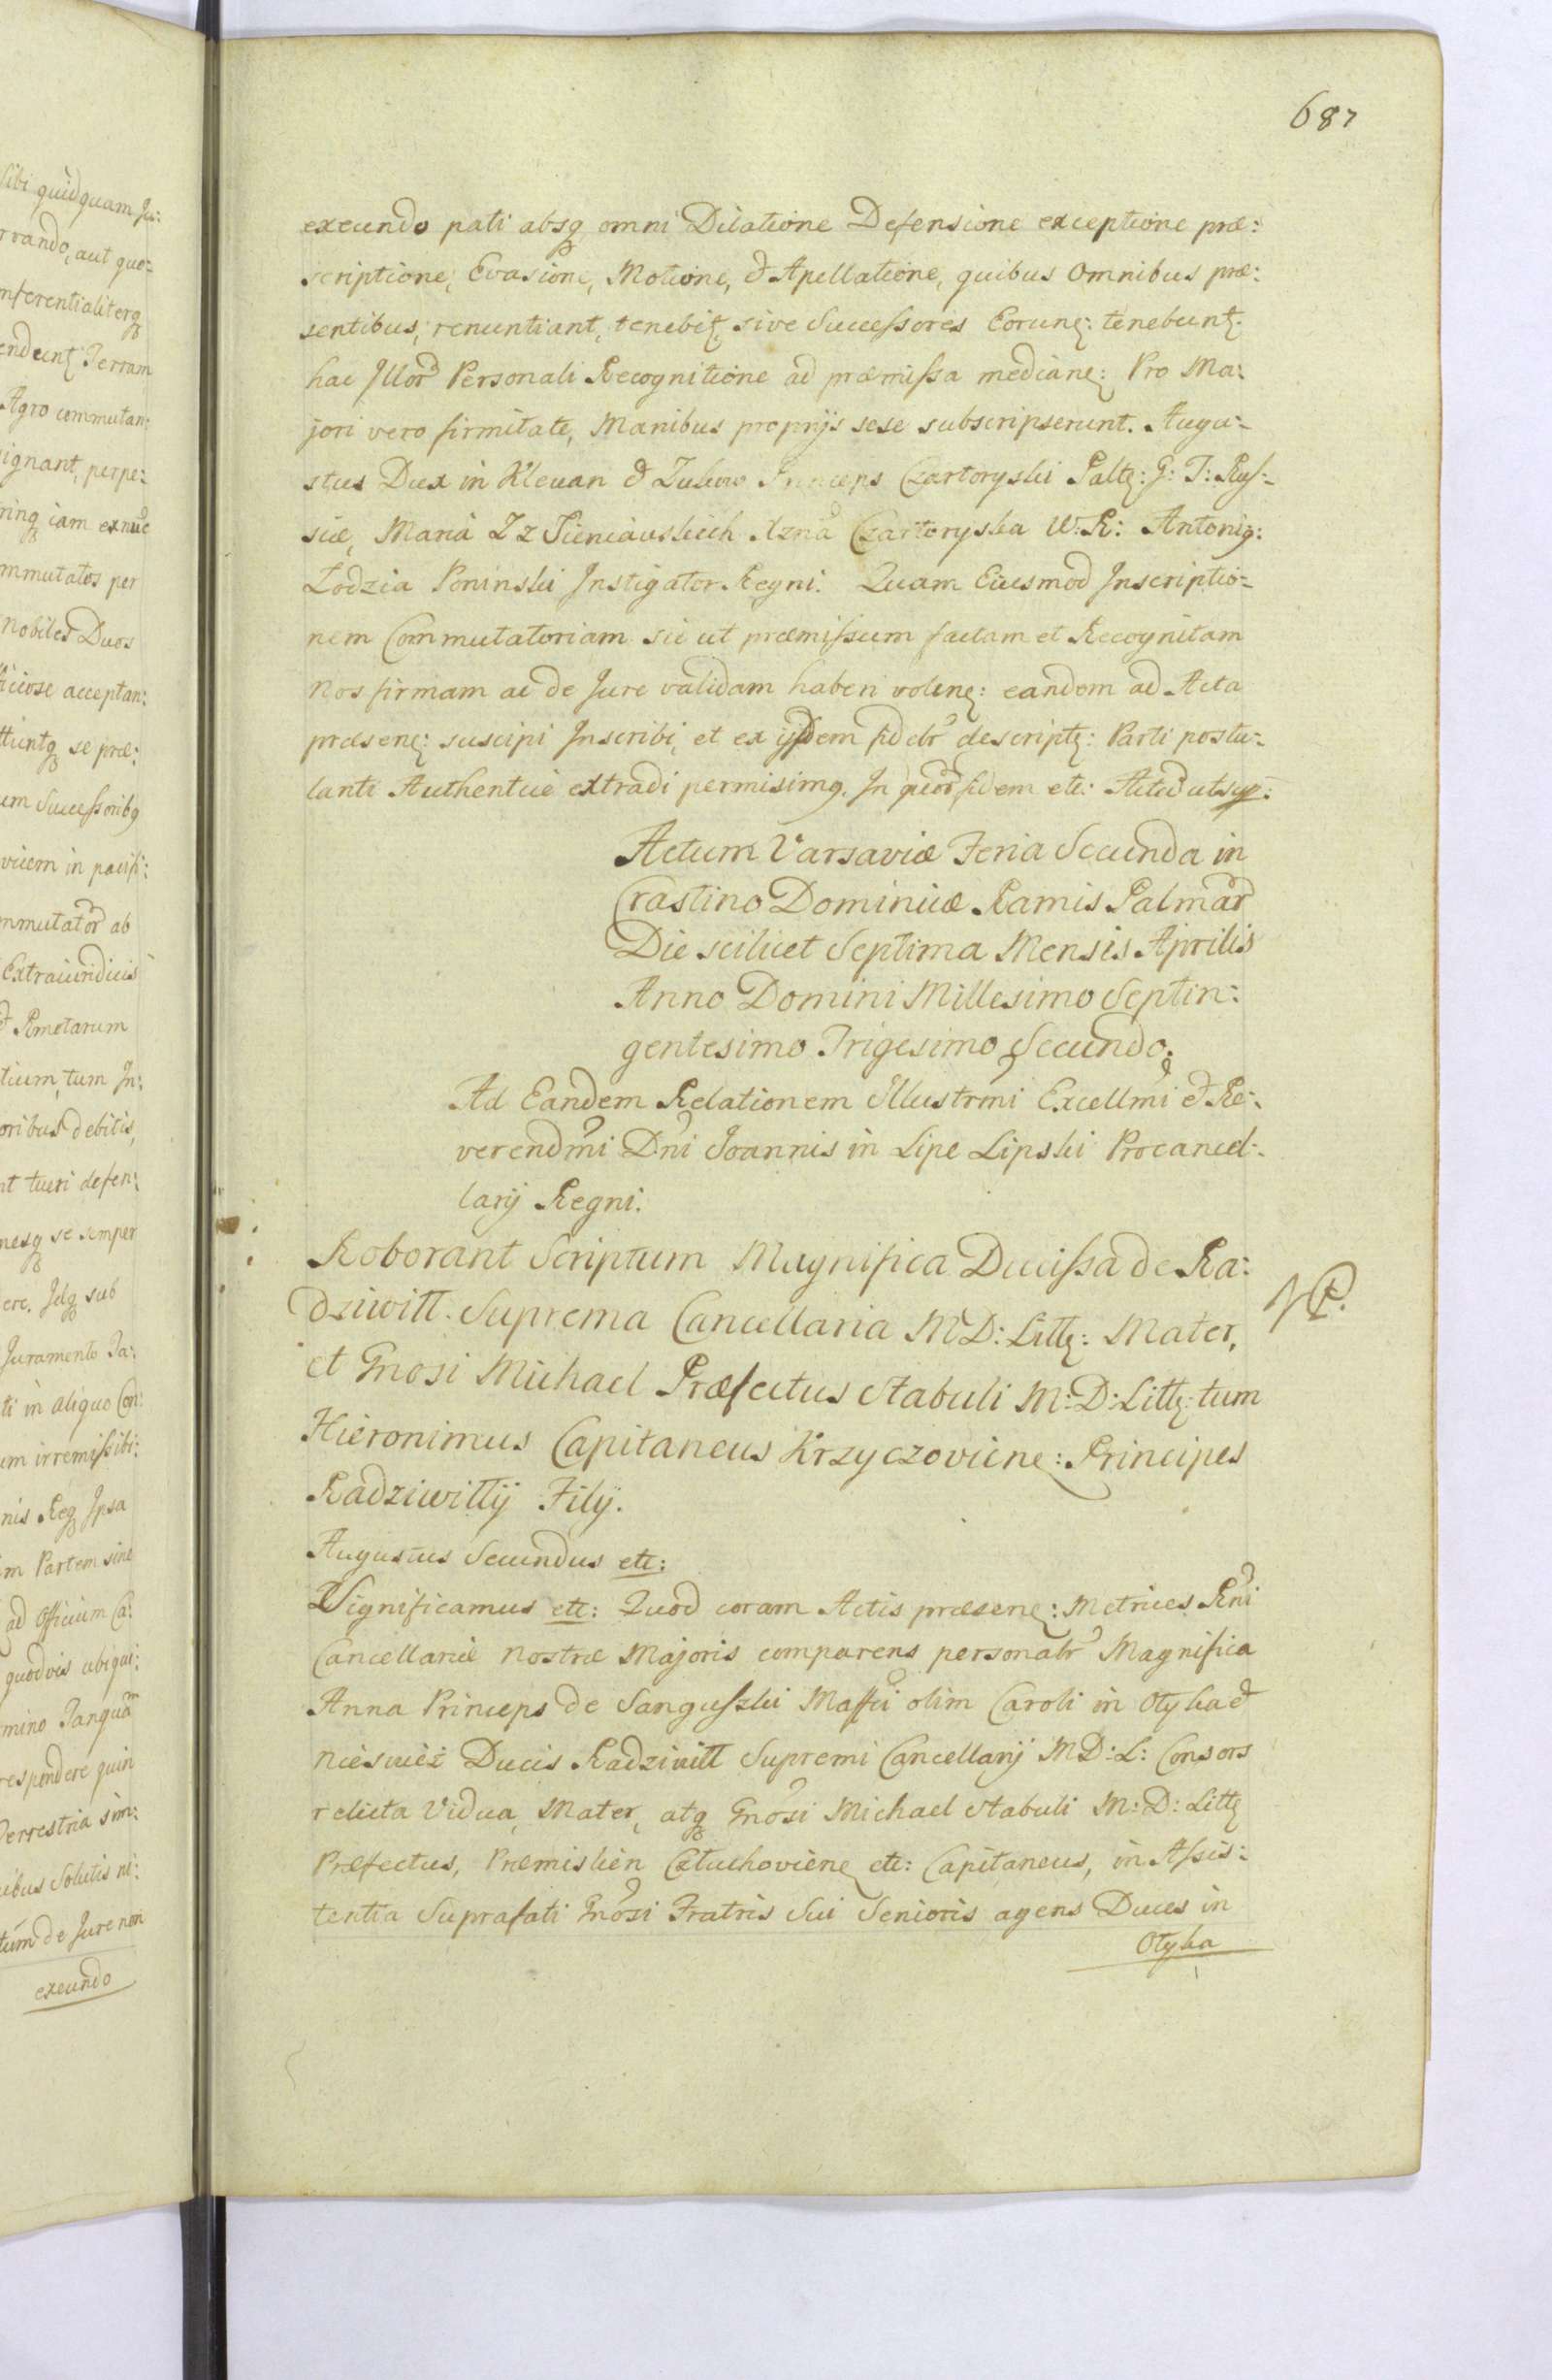 687
exeundo pati absq omni Dilatione Defensione exceptione præ:
scriptione, Evasione, Motione, & Apellatione, quibus Omnibus præ:
sentibus, renuntiant, tenebit, sive Successores Eorunq: tenebunt.
hac Illor Personali Recognitione ad præmissa medianę: Pro Ma:
jori vero firmitate, Manibus proprijs sese subscripserunt. Augu:
stus Dux in Klevan & Zukow Princeps Czartoryski Palt: G: T: Rus:
siæ, Maria Z z Sieniauskich Xzna Czartoryska W: R: Antoni9:
Lodzia Poninski Instigator Regni. Quam Eiusmod Inscriptio:
nem Commutatoriam sic ut præmissum factam et Recognitam
nos firmam ac de Jure validam haberi volenę: eandem ad Acta
præsenę: suscipi Inscribi, et ex ijsdem fidelr descriptę: Parti postu:
lanti Authentice extradi permisim9. In quor fidem etc: Acted ut sup:
Actum Varsaviæ Feria Secunda in
Crastino Dominicæ Ramis Palmar
Die scilicet Septima Mensis Aprilis
Anno Domini Millesimo Septin:
gentesimo Trigesimo Secundo.
Ad Eandem Relationem Illustrmi Excellmi & Re:
verendmi Dni Joannis in Lipe Lipski Procancel:
larij Regni.
Roborant Scriptum Magnifica Ducissa de Ra:
dziwill. Suprema Cancellaria M D: Litt: Mater,
et Gnosi Michael Præfectus Stabuli M: D: Litt: tum
Hieronimus Capitaneus Krzyczovienę: Principes
Radziwillij Filij.
Augustus Secundus etc:
Significamus etc: Quod coram Actis præsenę: Metrices Rni
Cancellariæ Nostræ Majoris comparens personalr Magnifica
Anna Princeps de Sanguszki Maffci olim Caroli in Olyka &
Nieswież Ducis Radziwill Supremi Cancellarij M D: L: Consors
relicta Vidua, Mater, atq Gnosi Michael Stabuli M: D: Litt
Præfectus, Præmislien Człuchovienę etc: Capitaneus, in Assis:
tentia Suprafati Gnosi Fratris Sui Senioris agens Duces in
Olyka
sibi quidquam Ju:
rvando, aut quo:
nferentialiterq
endunt Terram
Agro commutan:
signant, perpe:
rinq iam exnuc
mmutatos per
nobiles Duos
ficiose acceptan:
ttuntq se præ:
um Successorib9
vicem in pacifi:
mmutator ab
Extraiuridicis
& Kmetarum
tium, tum In:
oribus debitis,
nt tueri defen:
nesq se semper
ere. Idq sub
Juramento Ja:
ti in aliquo Con:
um irremissibi:
nis Req Ipsa
m Partem sine
ad Officium Ca:
quodvis ubiqui:
mino Tanqua
respondere quin
Terrestria sim:
ibus Solutis ni:
tum de Jure non
exeundo